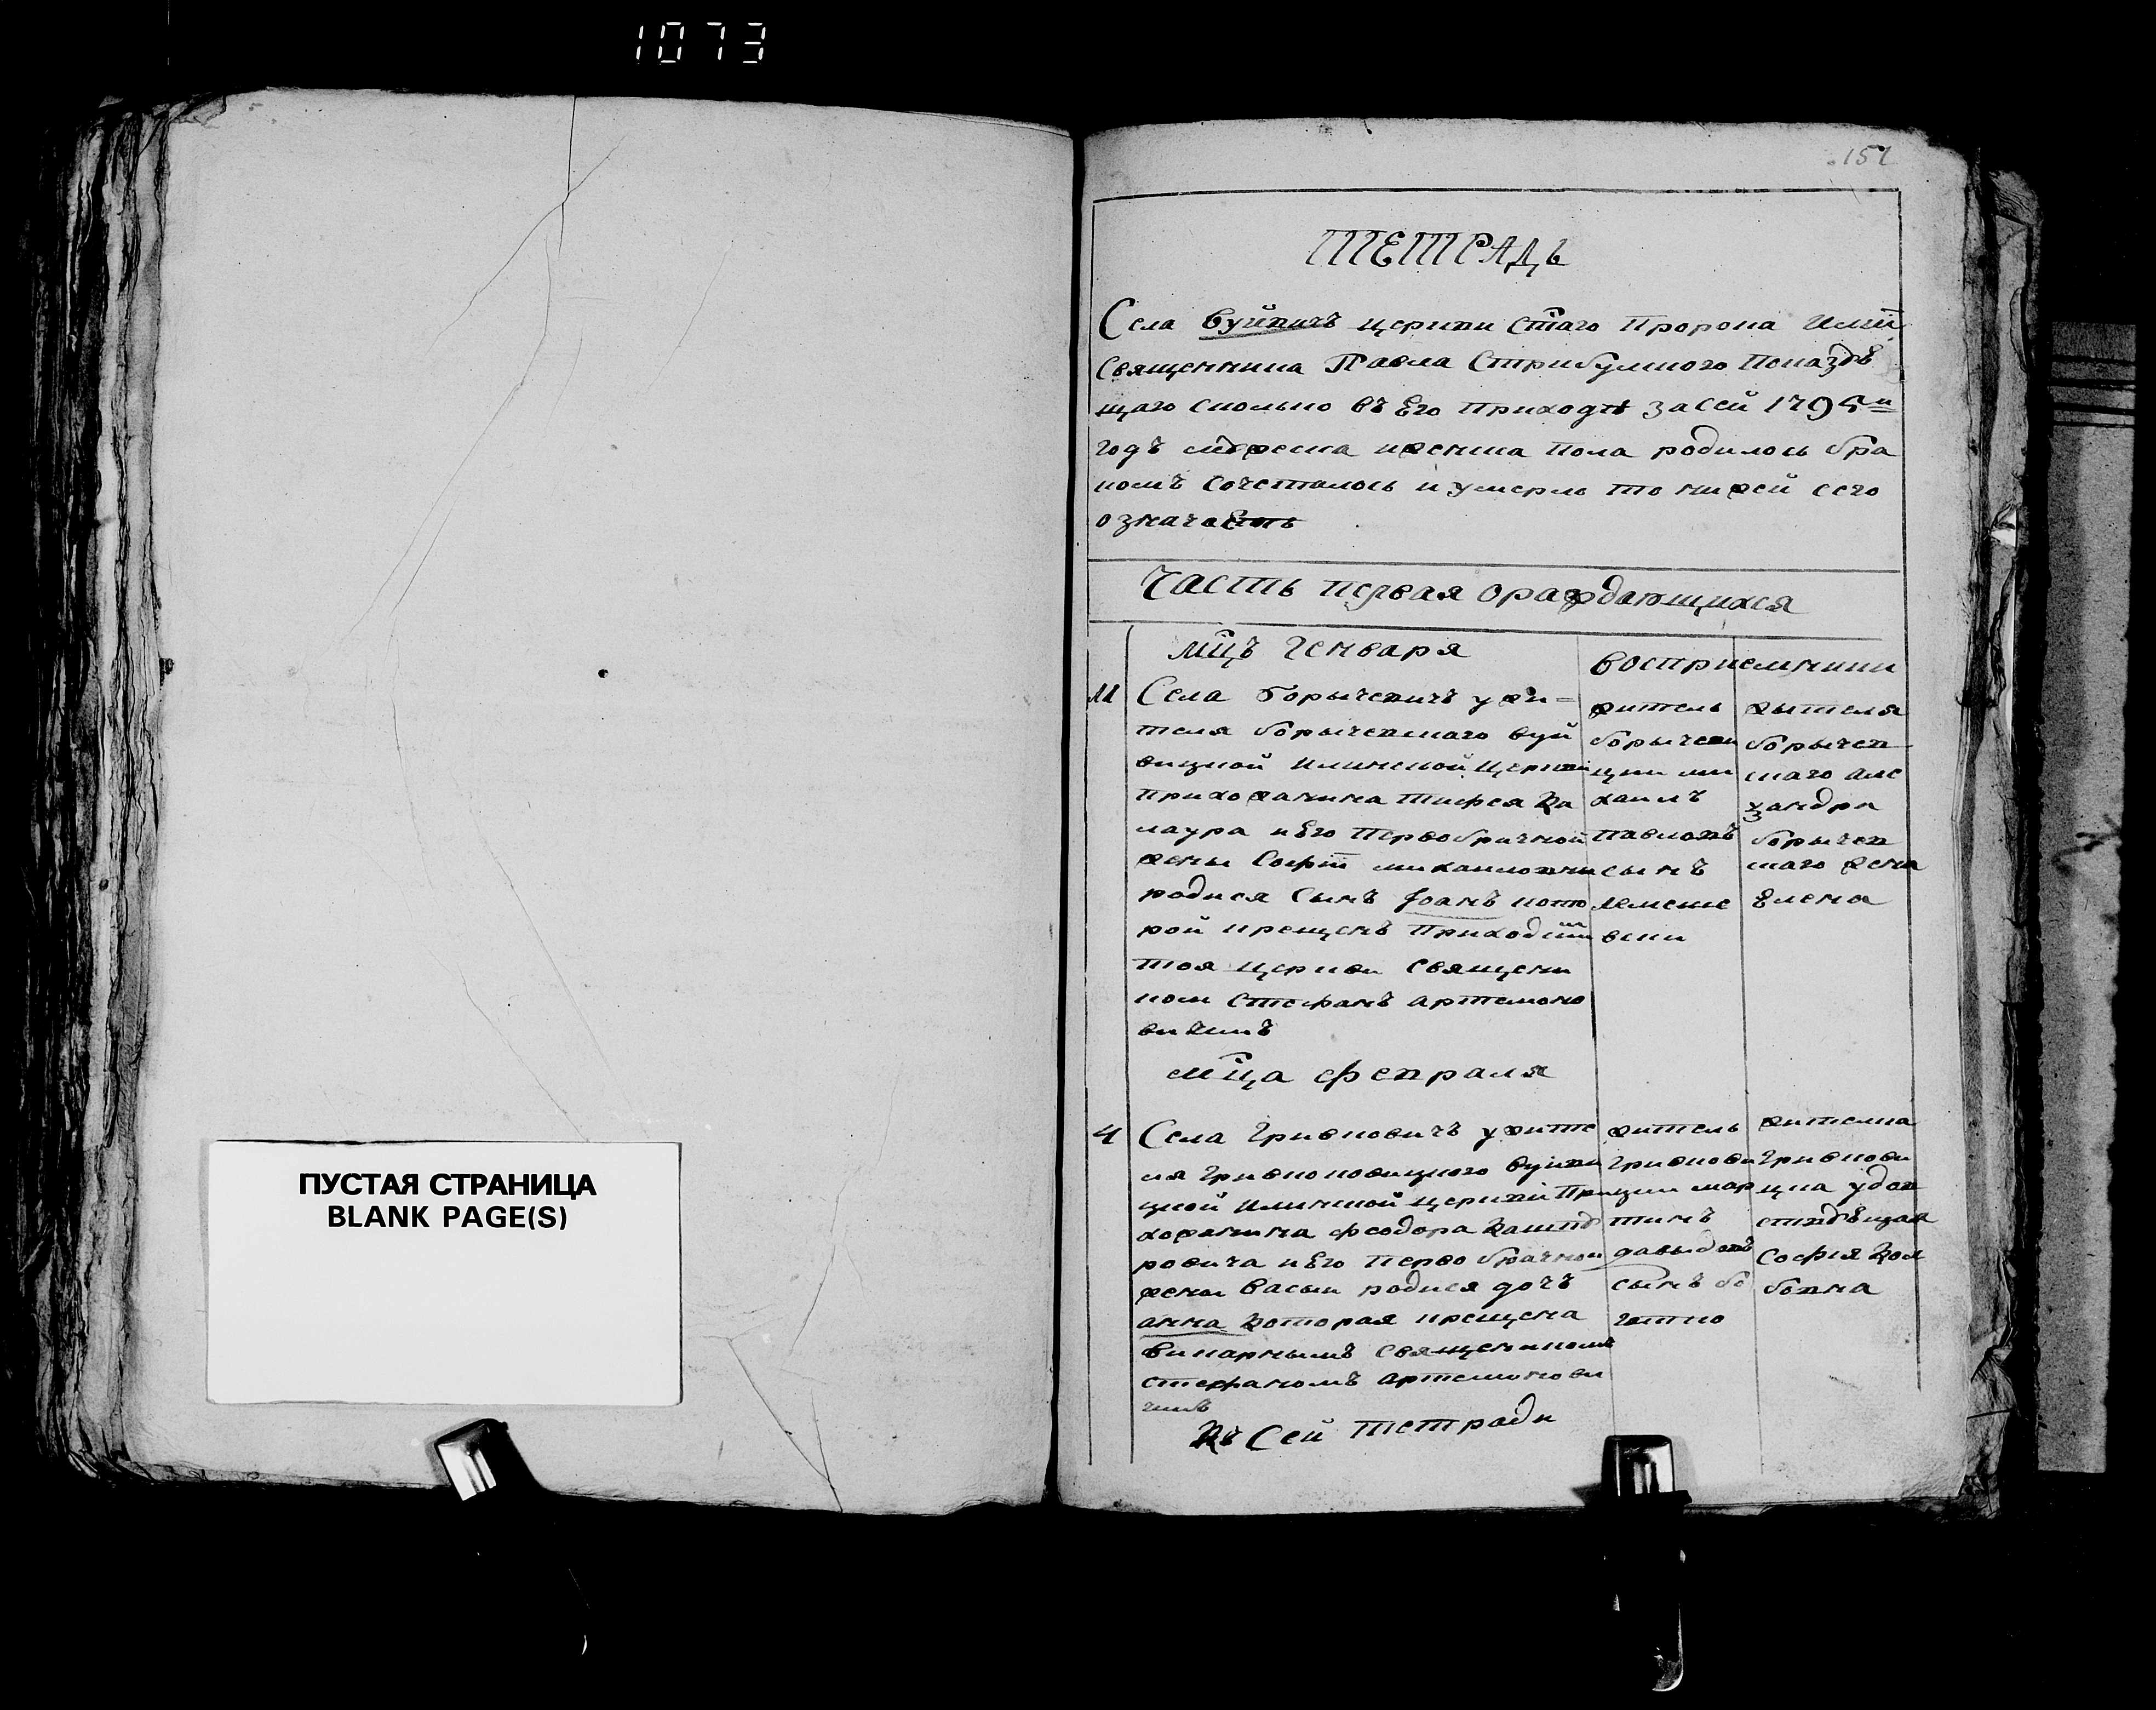 1073
151
ТЕТРАДЬ
Села Вуйвичъ церкви стаго Пророка Илїи
священника Павла Стрибулкого Показує
щаго сколько въ Его приходѣ за сей 1795й
годъ мужеска и женска пола родилось бра
комъ сочеталось и умерлъ то ниżей сего
означаетъ
Часть первая ораждающихся
мцъ Генваря
воспрiемники
11 Села Борычевичъ ужи=
теля борычевскаго вуй
вицкой илинской церкви
прихожанина Тифея Ка
лаура и Его первобрачной
жены Софїи михаиловни
родися сынъ Иоанъ кото
рой крещенъ приходской
тоя церкви священи
ком Стефанъ Артемоно
вичемъ
житель
борычеви
цки ми
хаилъ
павловъ
сынъ
Лемеше
вски
жытеля
борычев
скаго але
ѯандра
борычев
скаго жена
Елена
мца февраля
4 Села Гривковичъ ужите
ля Гривковицкого вуйви
цкой илинской церкви При
хожанина феодора Кашпо
ровича и Его первобрачной
жены Васы родися дочь
анна которая крещена
викарнымъ священикомъ
стефаномъ артемонови
чемъ
житель
Гривкови
цки мар
тинъ
давыдовъ
сынъ бо
гатко
жителка
Гривкови
цка удов
ствующая
София Кол
бовна
Къ Сей тетради
ПУСТАЯ СТРАНИЦА
BLANK PAGE(S)